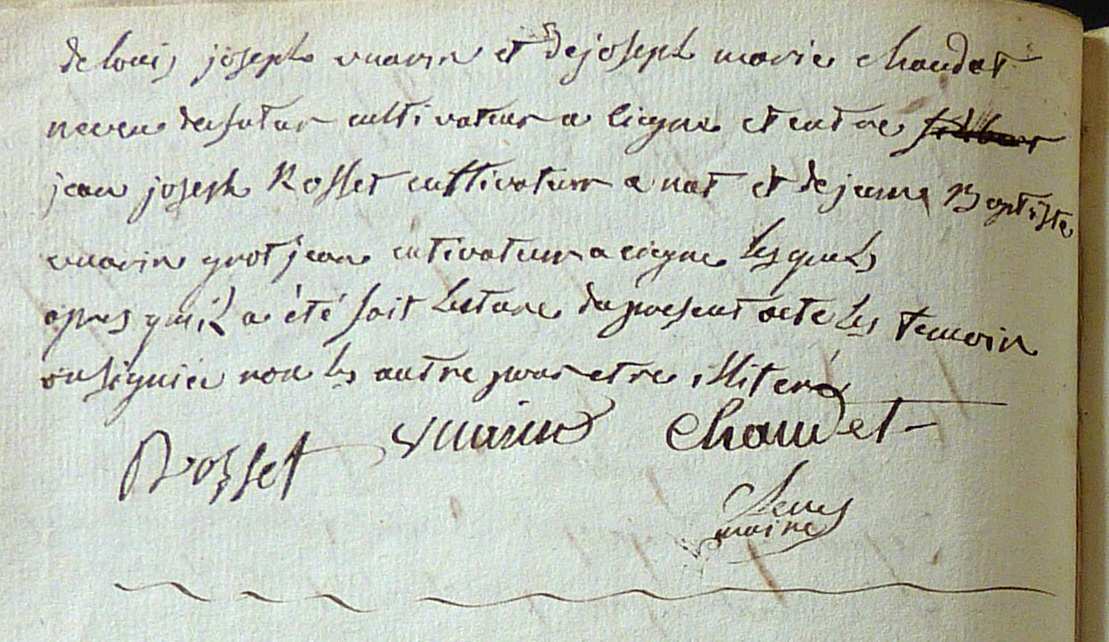 de louis joseph vuarin et de joseph marie chaudet
neveu du futur cultivateur a ciegne et entre
jean joseph Rosset cultivateur a nat et de jeans Baptiste
vuarin grot jean cutivateur a ciegne lesquels
apres qu'il a été fait lecture du present acte les temoin
on signiée non les autre pour etre illiteré
Rosset vuarin chaudet
maire